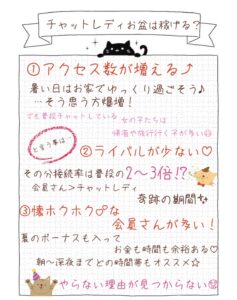 チャットレディお盆は稼げる?
①アクセス数が増える⤴
暑い日はお家でゆっくり過ごそう♪
…そう思う方増増!
でも普段チャットしている
女の子たちは
帰省や旅行行く子が多い
と言う事は
②ライバルが少ない♡
その分接続率は普段の2〜3倍!?
会員さん>チャットレディ
奇跡の期間✨
③懐ホクホクな
会員さんが多い!
夏のボーナスも入って
お金も時間も余裕ある♡
朝〜深夜までどの時間帯もオススメ☆
やらない理由が見つからない